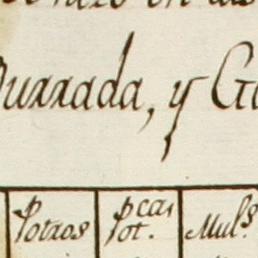 urrada, y G
Potros
p.cas Pot.
Mul.s